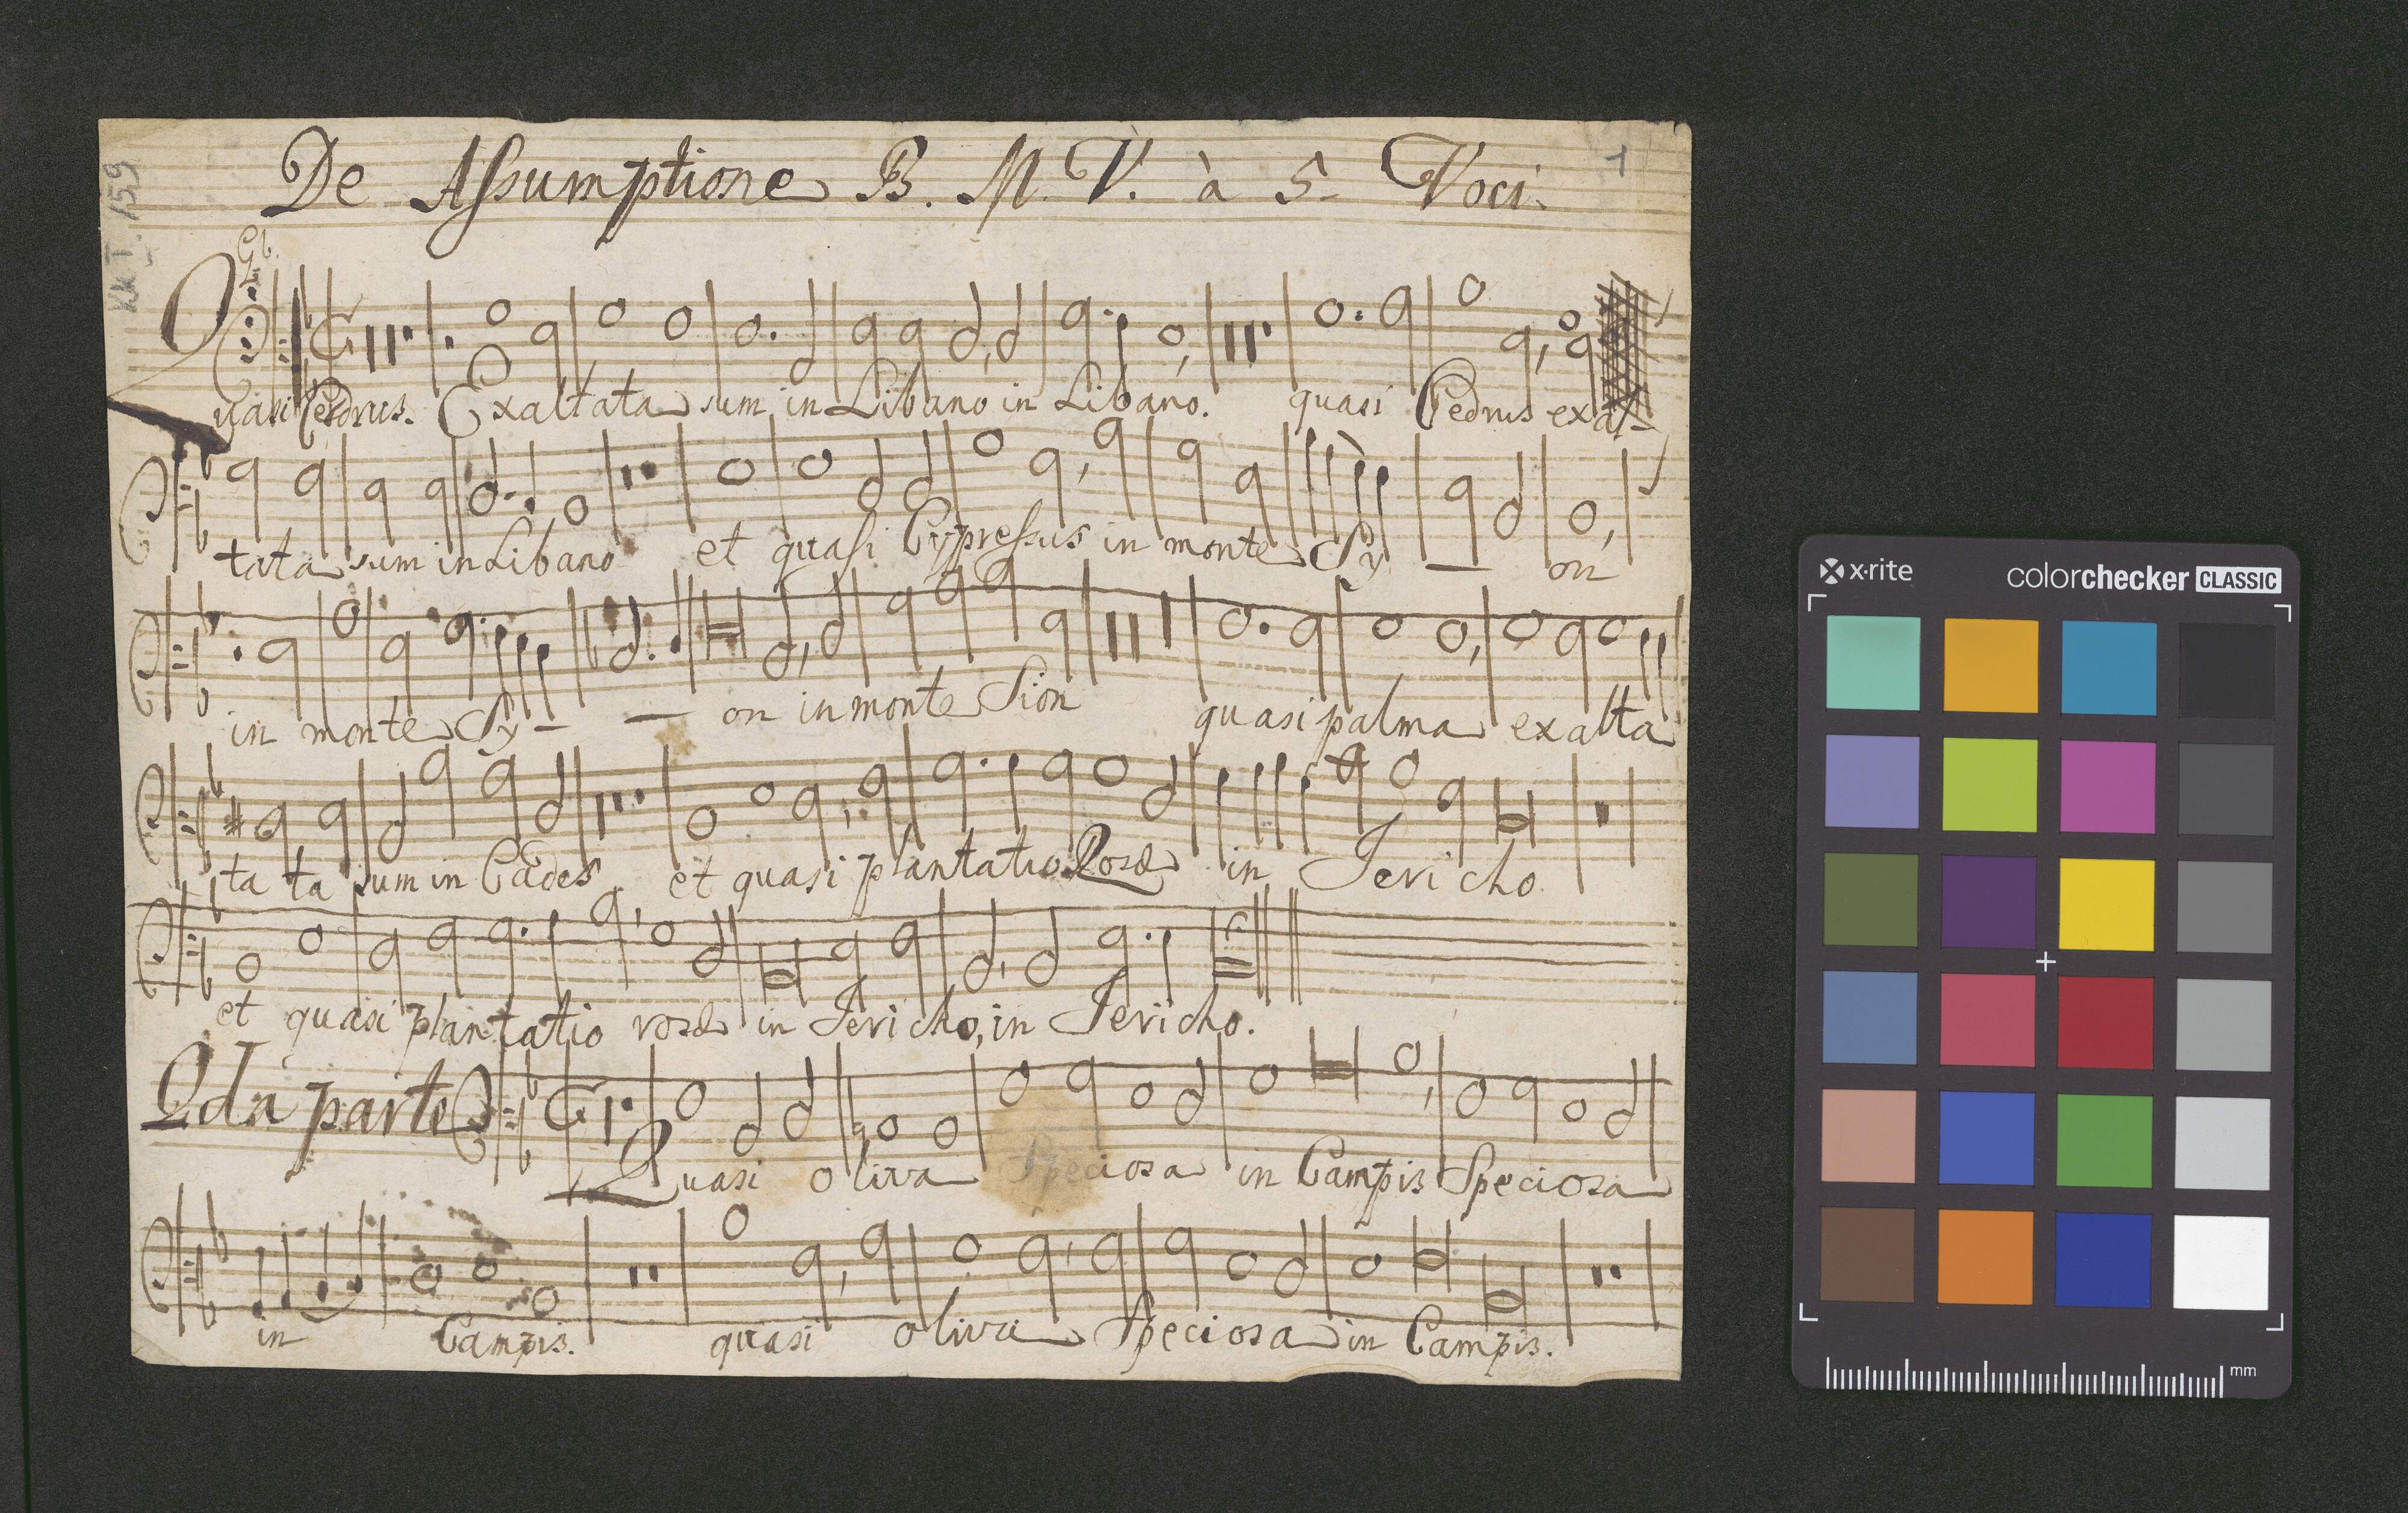 De Assumptione B. M. V. à 5 Voci.
1
KK I. 159
Quasi Cedrus. Exaltata sum in Libano in Libano. quasi Cedrus exal-
tata sum in Libano et quasi Cypressus in monte Sy — on
in monte Sy - — on in monte Sion quasi palma exalta
ta ta sum in Cades et quasi plantatio Rosæ in Jericho
et quasi plantatio rosæ in Jericho, in Jericho.
2da parte
Quasi oliva Speciosa in Campis Speciosa
in Campis. quasi oliva Speciosa in Campis.
x-rite
colorchecker CLASSIC
mm